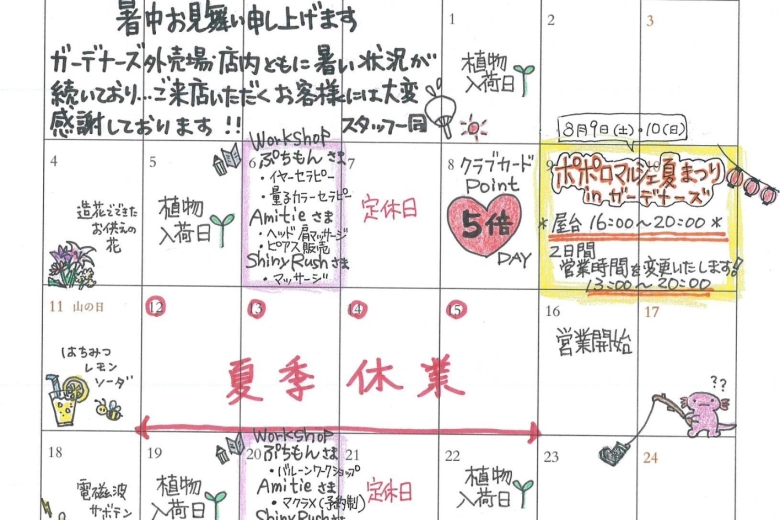 暑中お見舞い申し上げます
ガーデナーズ外売場・店内ともに暑い状況が
続いており…ご来店いただくお客様には大変
感謝しております!!
スタッフ一同
1
植物
入荷日
2
3
4
造花でできた
お供えの
花
5
植物
入荷日
Workshop
6
ぷちもんさま
・イヤーセラピー
・量子カラーセラピー
Amitieさま
・ヘッド肩マッサージ
・ピアス販売
ShinyRushさま
・マッサージ
7
定休日
8
クラブカード
Point
5倍
DAY
8月9日(土)・10(日)
9
ポポロマルシェ夏まつり
inガーデナーズ
*屋台 16:00〜20:00*
2日間
営業時間を変更いたします!
13:00〜20:00
11 山の日
はちみつ
レモン
ソーダ
12
13
14
15
夏季休業
16
営業開始
17
??
18
電磁波
サボテン
19
植物
入荷日
Workshop
20
ぷちもんさま
・バルーンワークショップ
Amitieさま
・マクラメ(予約制)
ShinyRushさま
21
定休日
22
植物
入荷日
23
24